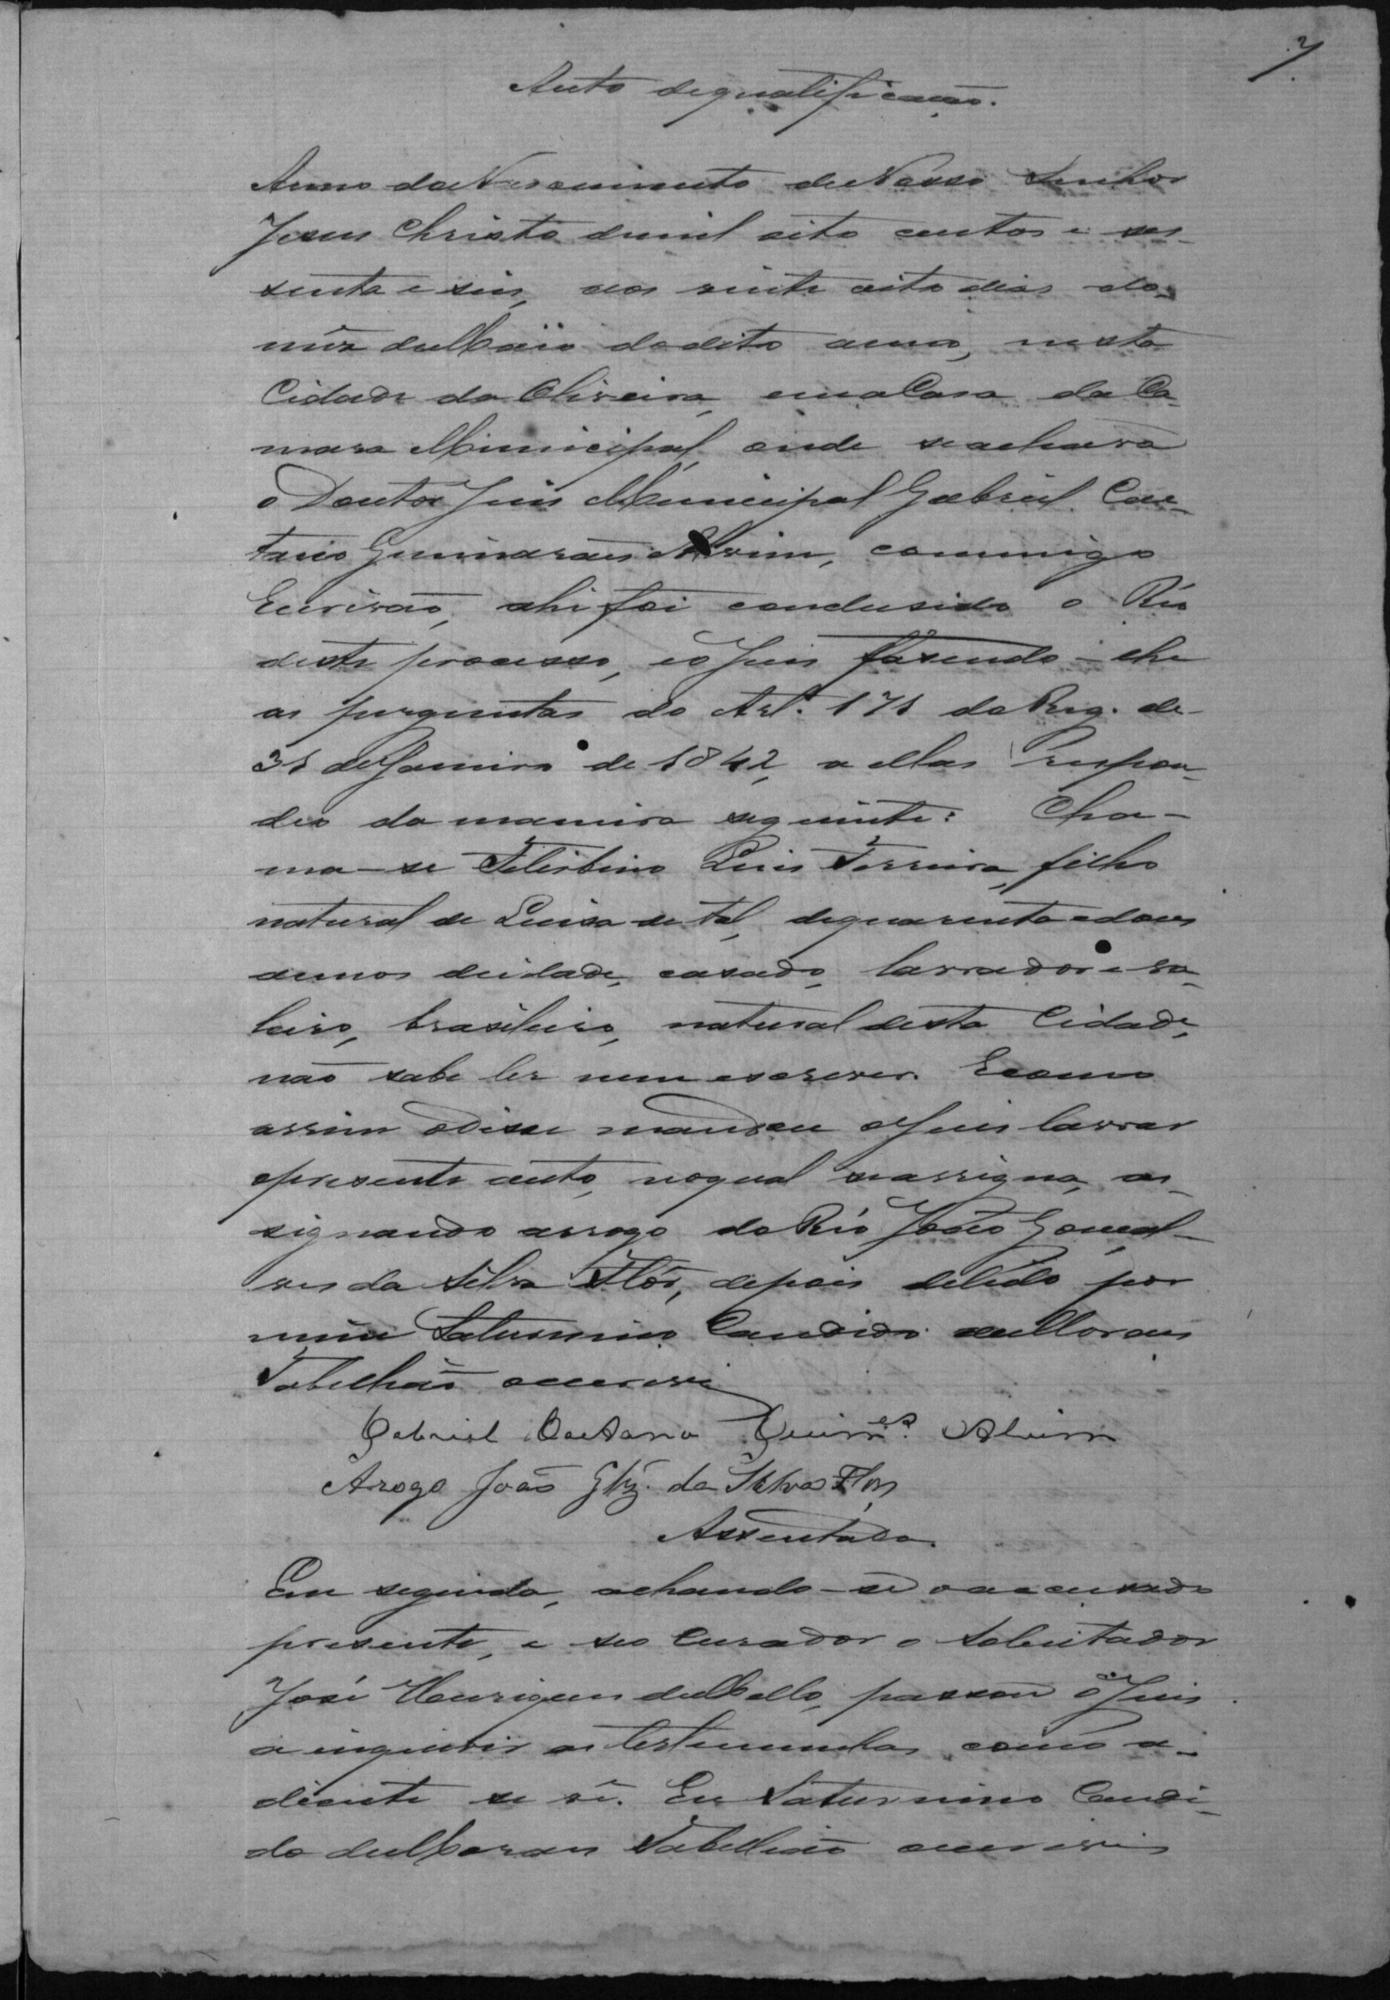 7
Auto dequalificação.
Anno do Nascimento de Nosso Senhor
Jesus Christo de mil oito centos e ses-
senta e seis, aos vinte oito dias do
mês de Maio do dito anno, nesta
Cidade da Oliveira, em a Casa da Ca-
mara Municipal, onde se achava
o Doutor Juis Municipal Gabriel Cae-
tano Guimarães Alvim, commigo
Escrivão, ahi foi condusido o Réo
deste processo, e o Juis fasendo-lhe
as perguntas do Art. 171 do Reg. de
31 de Janeiro de 1842, a ellas respon-
deo da maneira seguinte: Cha-
ma-se Felisbino Luis Ferreira, filho
natural de Luisa de tal, de quarenta e dous
annos de idade, casado, lavrador e sa-
leiro, brasileiro, natural desta Cidade,
não sabe ler nem escrever. E como
assim o disse mandou o Juis lavrar
o presente auto, no qual se assigna, as-
signando arrogo do Réo João Gonçal-
ves da Silva Flôr, depois de lido por
mim Saturnino Candido de Moraes
Tabellião o escrevi
Gabriel Caetano Guim.es Alvim
Arogo João Glz. da Silva Flor
Assentada.
Em seguida, achando-se o accusado
presente, e seo Curador o Solicitador
José Henriques de Mello, passou o Juis
a inquirir as testemunhas como a-
diante se vê. Eu Saturnino Candi-
do de Moraes Tabellião o escrevi